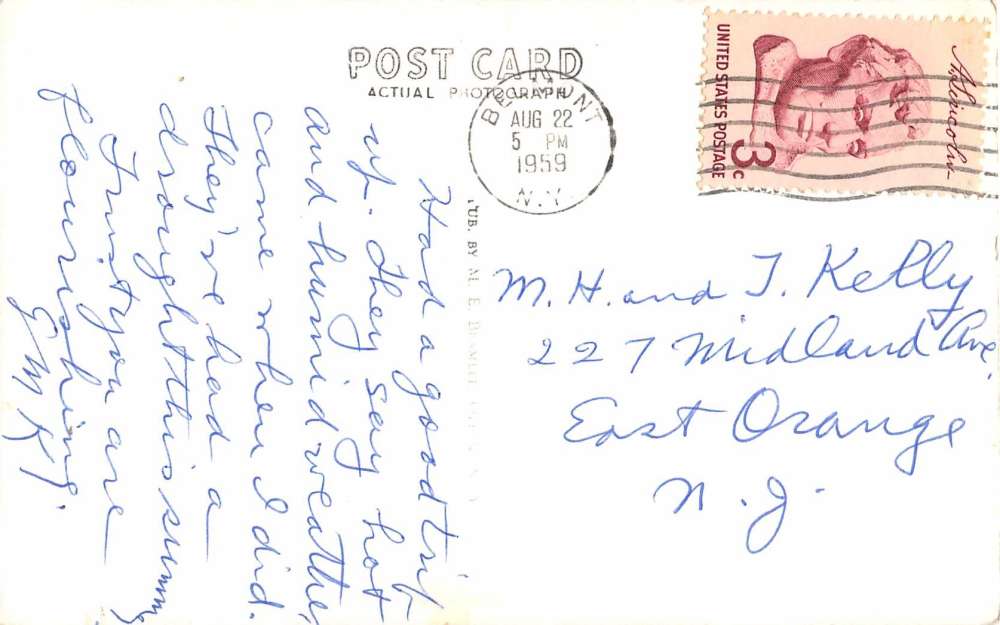 POST CARD
ACTUAL PHOTOGRAPH
BELMONT
AUG 22
5 PM
1959
N.Y.
A. Lincoln
UNITED STATES POSTAGE
3c
Had a good trip
up. They say hot
and humid weather
came when I did.
They've had a
drought this summer
Trust you are
flourishing.
EMK
PUB. BY M. E.
M. H. and T. Kelly
227 Midland Ave.
East Orange
N.J.